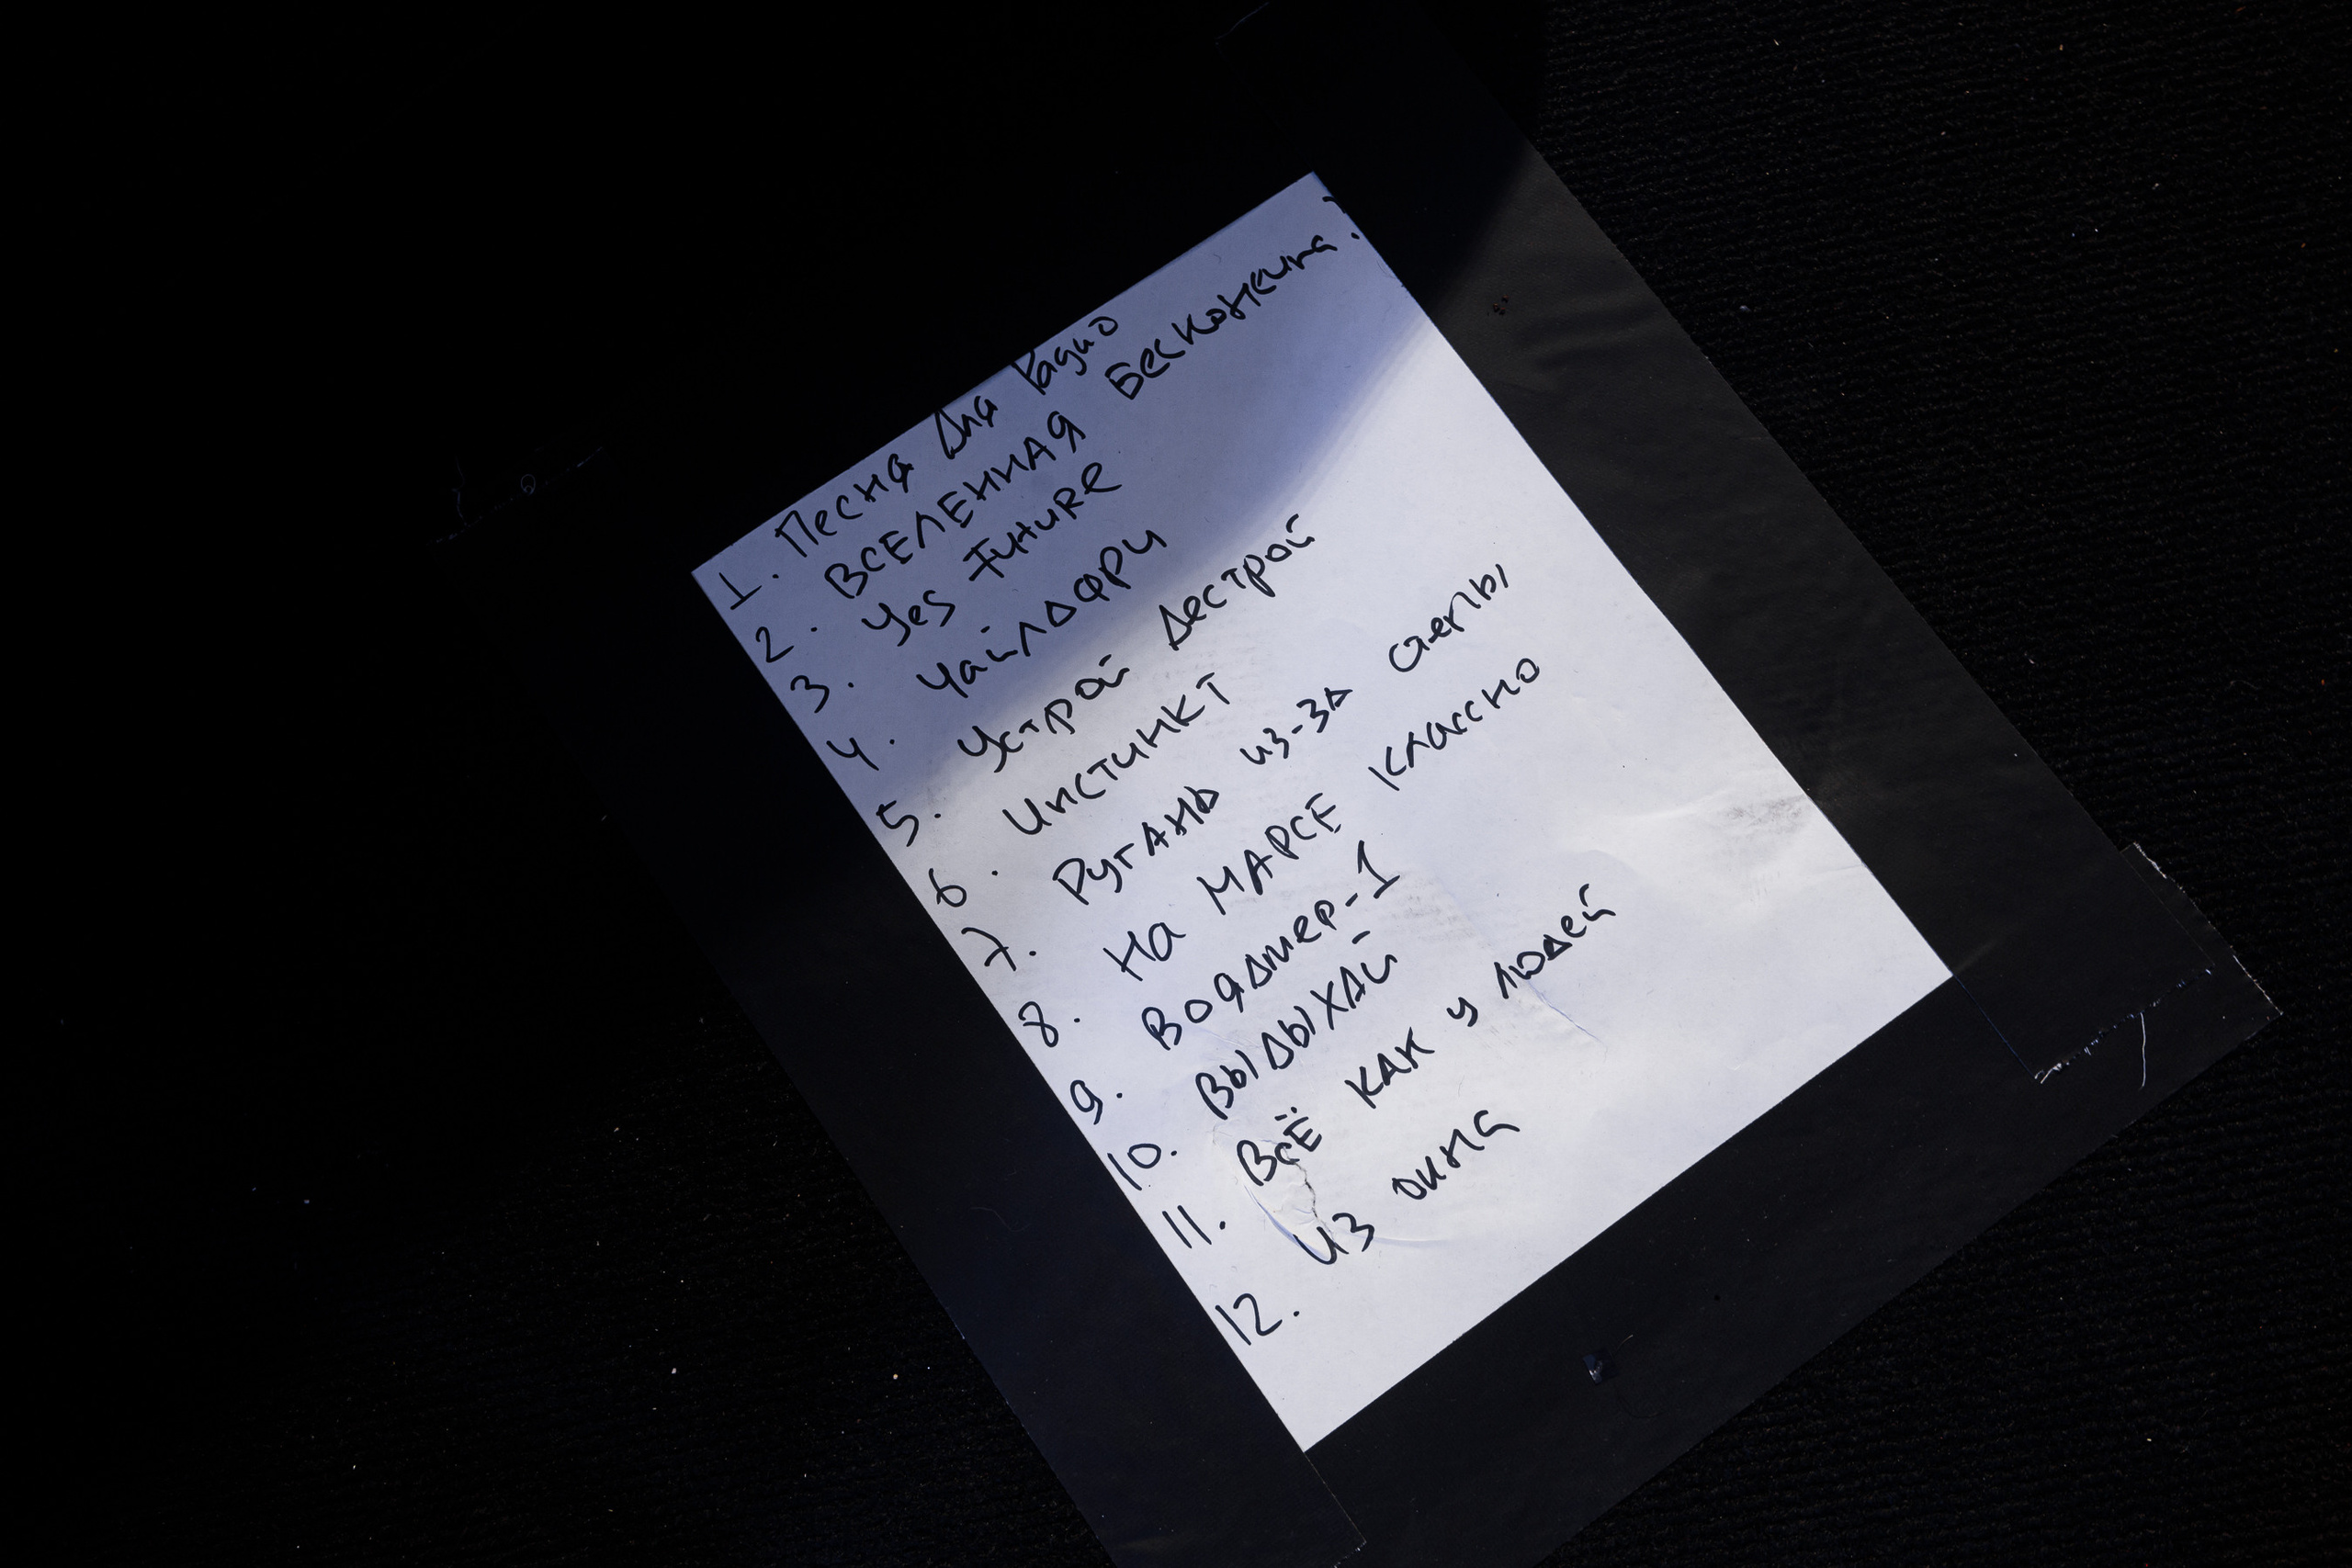 1. Песня Для Радио
2. ВСЕЛЕННАЯ Бесконечна?
3. Yes Future
4. Чайлдфри
5. Устрой Дестрой
6. Инстинкт
7. Ругань из-за стены
8. На МАРСЕ классно
9. Вояджер-1
10. ВЫДЫХАЙ
11. ВСЁ КАК у людей
12. ИЗ окна